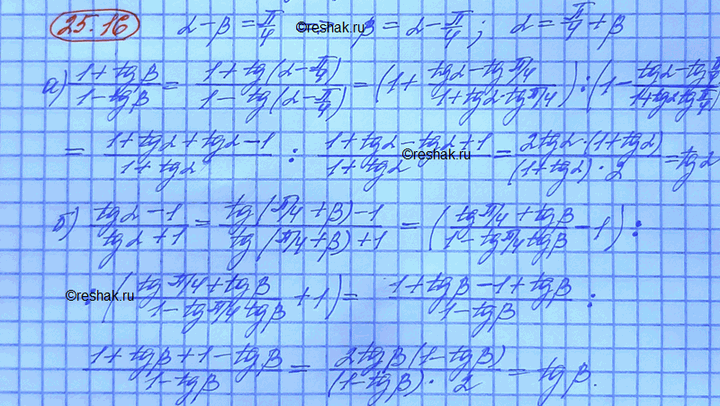 25.16 α-β = π/4 ©reshak.ru β = α - π/4 ; α = π/4 + β
а) (1+tgβ)/(1-tgβ) = (1+tg(α-π/4))/(1-tg(α-π/4)) = (1+ (tgα-tgπ/4)/(1+tgα·tgπ/4)) : (1- (tgα-tgπ/4)/(1+tgα tgπ/4)
= (1+tgα+tgα-1)/(1+tgα) : (1+tgα-tgα+1)/(1+tgα) ©reshak.ru = (2tgα·(1+tgα))/((1+tgα)·2) = tgα
б) (tgα-1)/(tgα+1) = (tg(π/4+β)-1)/(tg(π/4+β)+1) = ((tgπ/4+tgβ)/(1-tgπ/4 tgβ) -1) :
©reshak.ru : ((tgπ/4+tgβ)/(1-tgπ/4 tgβ) +1) = (1+tgβ-1+tgβ)/(1-tgβ) :
(1+tgβ+1-tgβ)/(1-tgβ) = (2tgβ(1-tgβ))/((1-tgβ)·2) = tgβ.